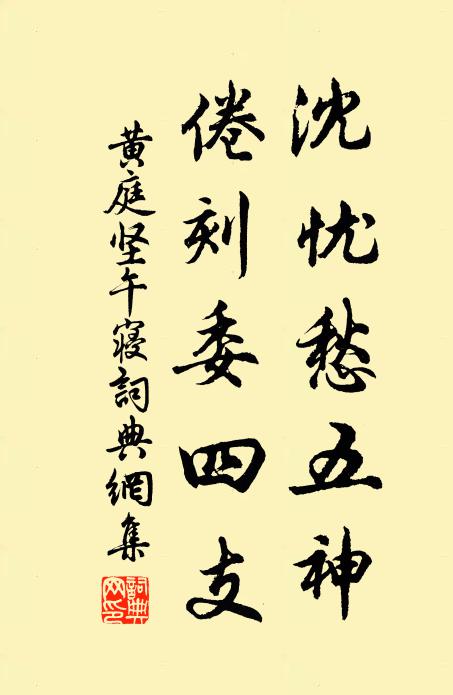 沈忧愁五神
倦刻委四支
黄庭坚午寝詞典網集
詞典網印